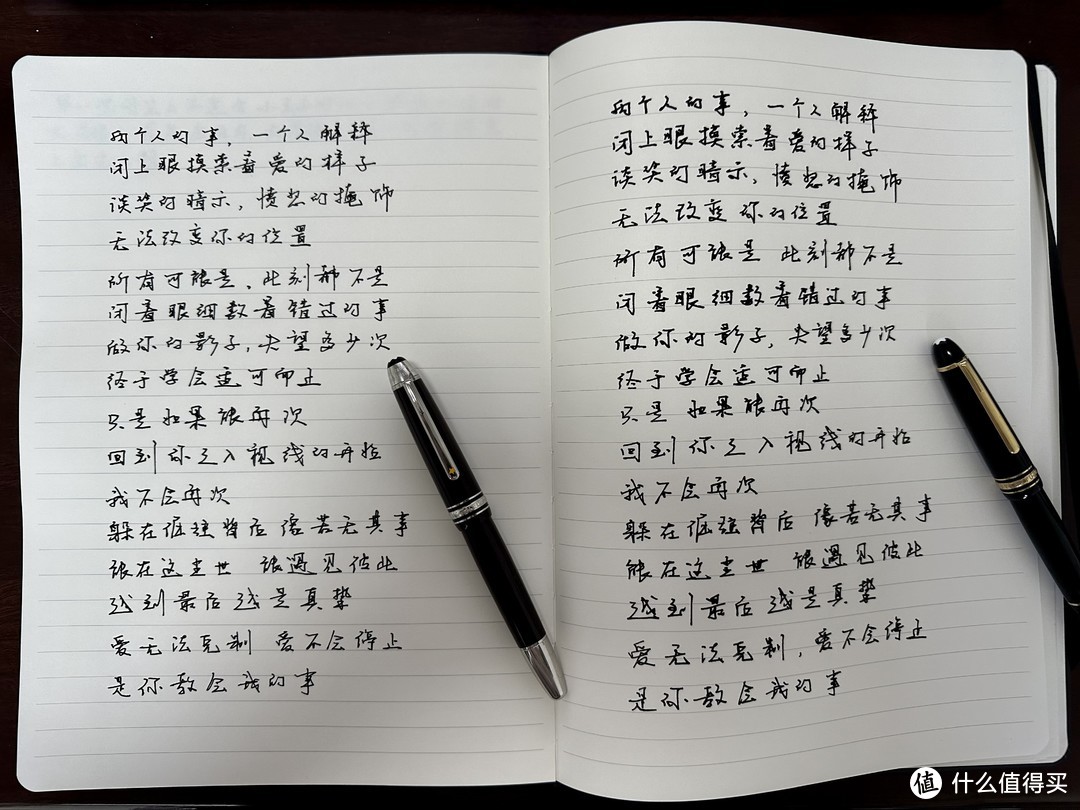 两个人的事，一个人解释
闭上眼摸索着爱的样子
谈笑的暗示，愤怒的掩饰
无法改变你的位置
所有可能是、此刻都不是
闭着眼细数着错过的事
做你的影子，失望多少次
终于学会适可而止
只是如果能再次
回到你走入视线的开始
我不会再次
躲在倔强背后 像若无其事
能在这尘世 能遇见彼此
浅到最后浅是真挚
爱无法克制 爱不会停止
是你教会我的事
两个人的事，一个人解释
闭上眼摸索着爱的样子
谈笑的暗示，愤怒的掩饰
无法改变你的位置
所有可能是 此刻都不是
闭着眼细数着错过的事
做你的影子，失望多少次
终于学会适可而止
只是如果能再次
回到你走入视线的开始
我不会再次
躲在倔强背后 像若无其事
能在这尘世 能遇见彼此
浅到最后浅是真挚
爱无法克制，爱不会停止
是你教会我的事
值 什么值得买